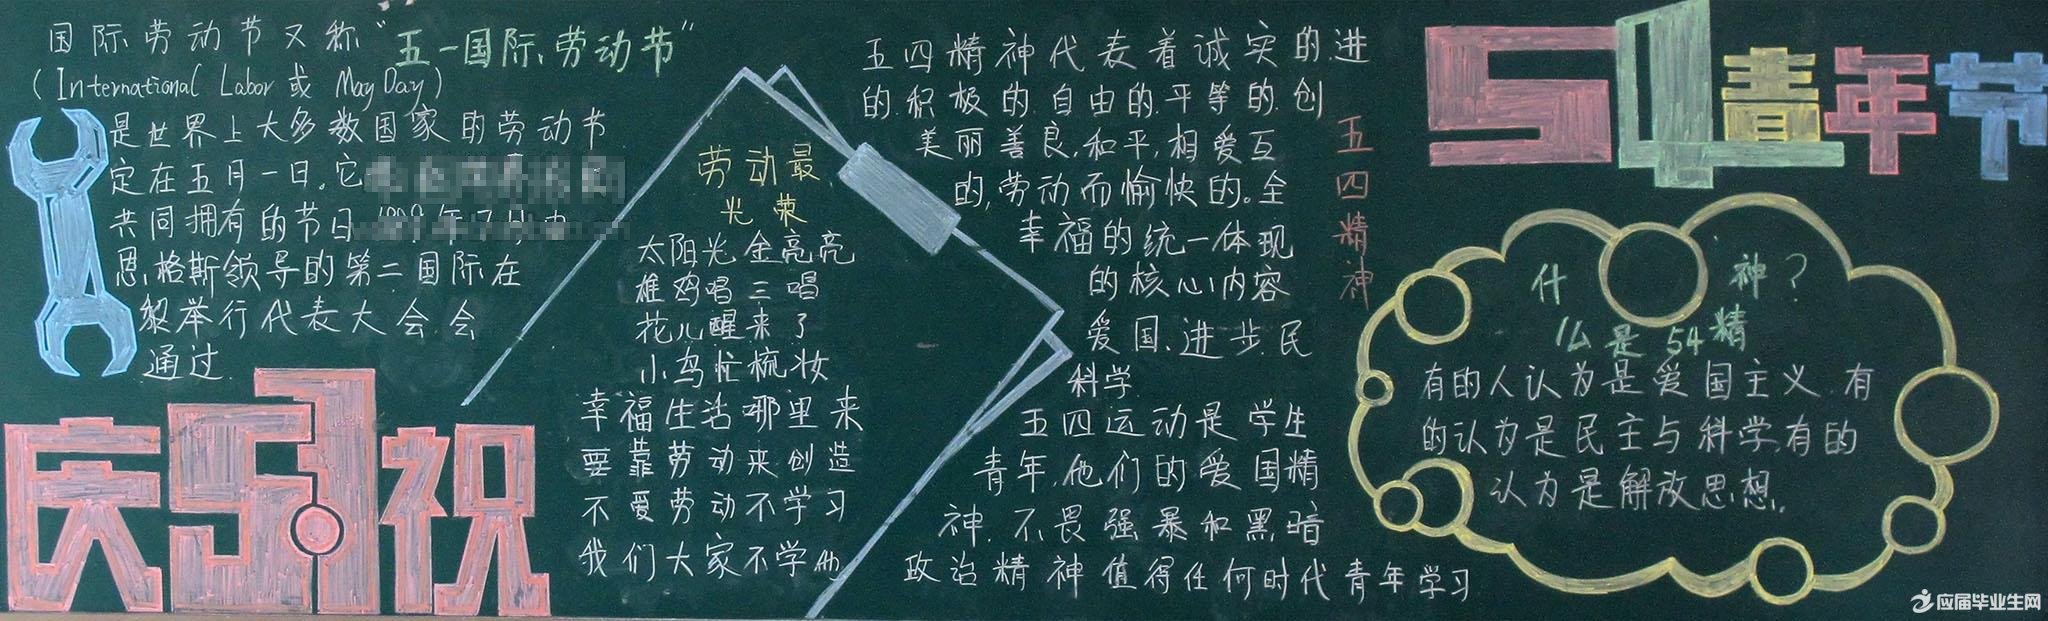 国际劳动节又称"五一国际劳动节"
(International Labor或May Day)
是世界上大多数国家的劳动节
定在五月一日。它
共同拥有的节日
恩格斯领导的第二国际在
黎举行代表大会会
通过
庆5.1祝
劳动最
光荣
太阳光金亮亮
雄鸡唱三唱
花儿醒来了
小鸟忙梳妆
幸福生活哪里来
要靠劳动来创造
不爱劳动不学习
我们大家不学他
五四精神代表着诚实的.进
的.积极的.自由的.平等的.创
美丽善良.和平,相爱互
的,劳动而愉快的。全
幸福的统一体现
的核心内容
爱国.进步.民
科学.
五四运动是学生
青年,他们的爱国精
神.不畏强暴和黑暗
政治精神值得任何时代青年学习
五四精神
54青年节
什 神?
么是54精
有的人认为是爱国主义.有
的认为是民主与科学,有的
认为是解放思想.
应届毕业生网